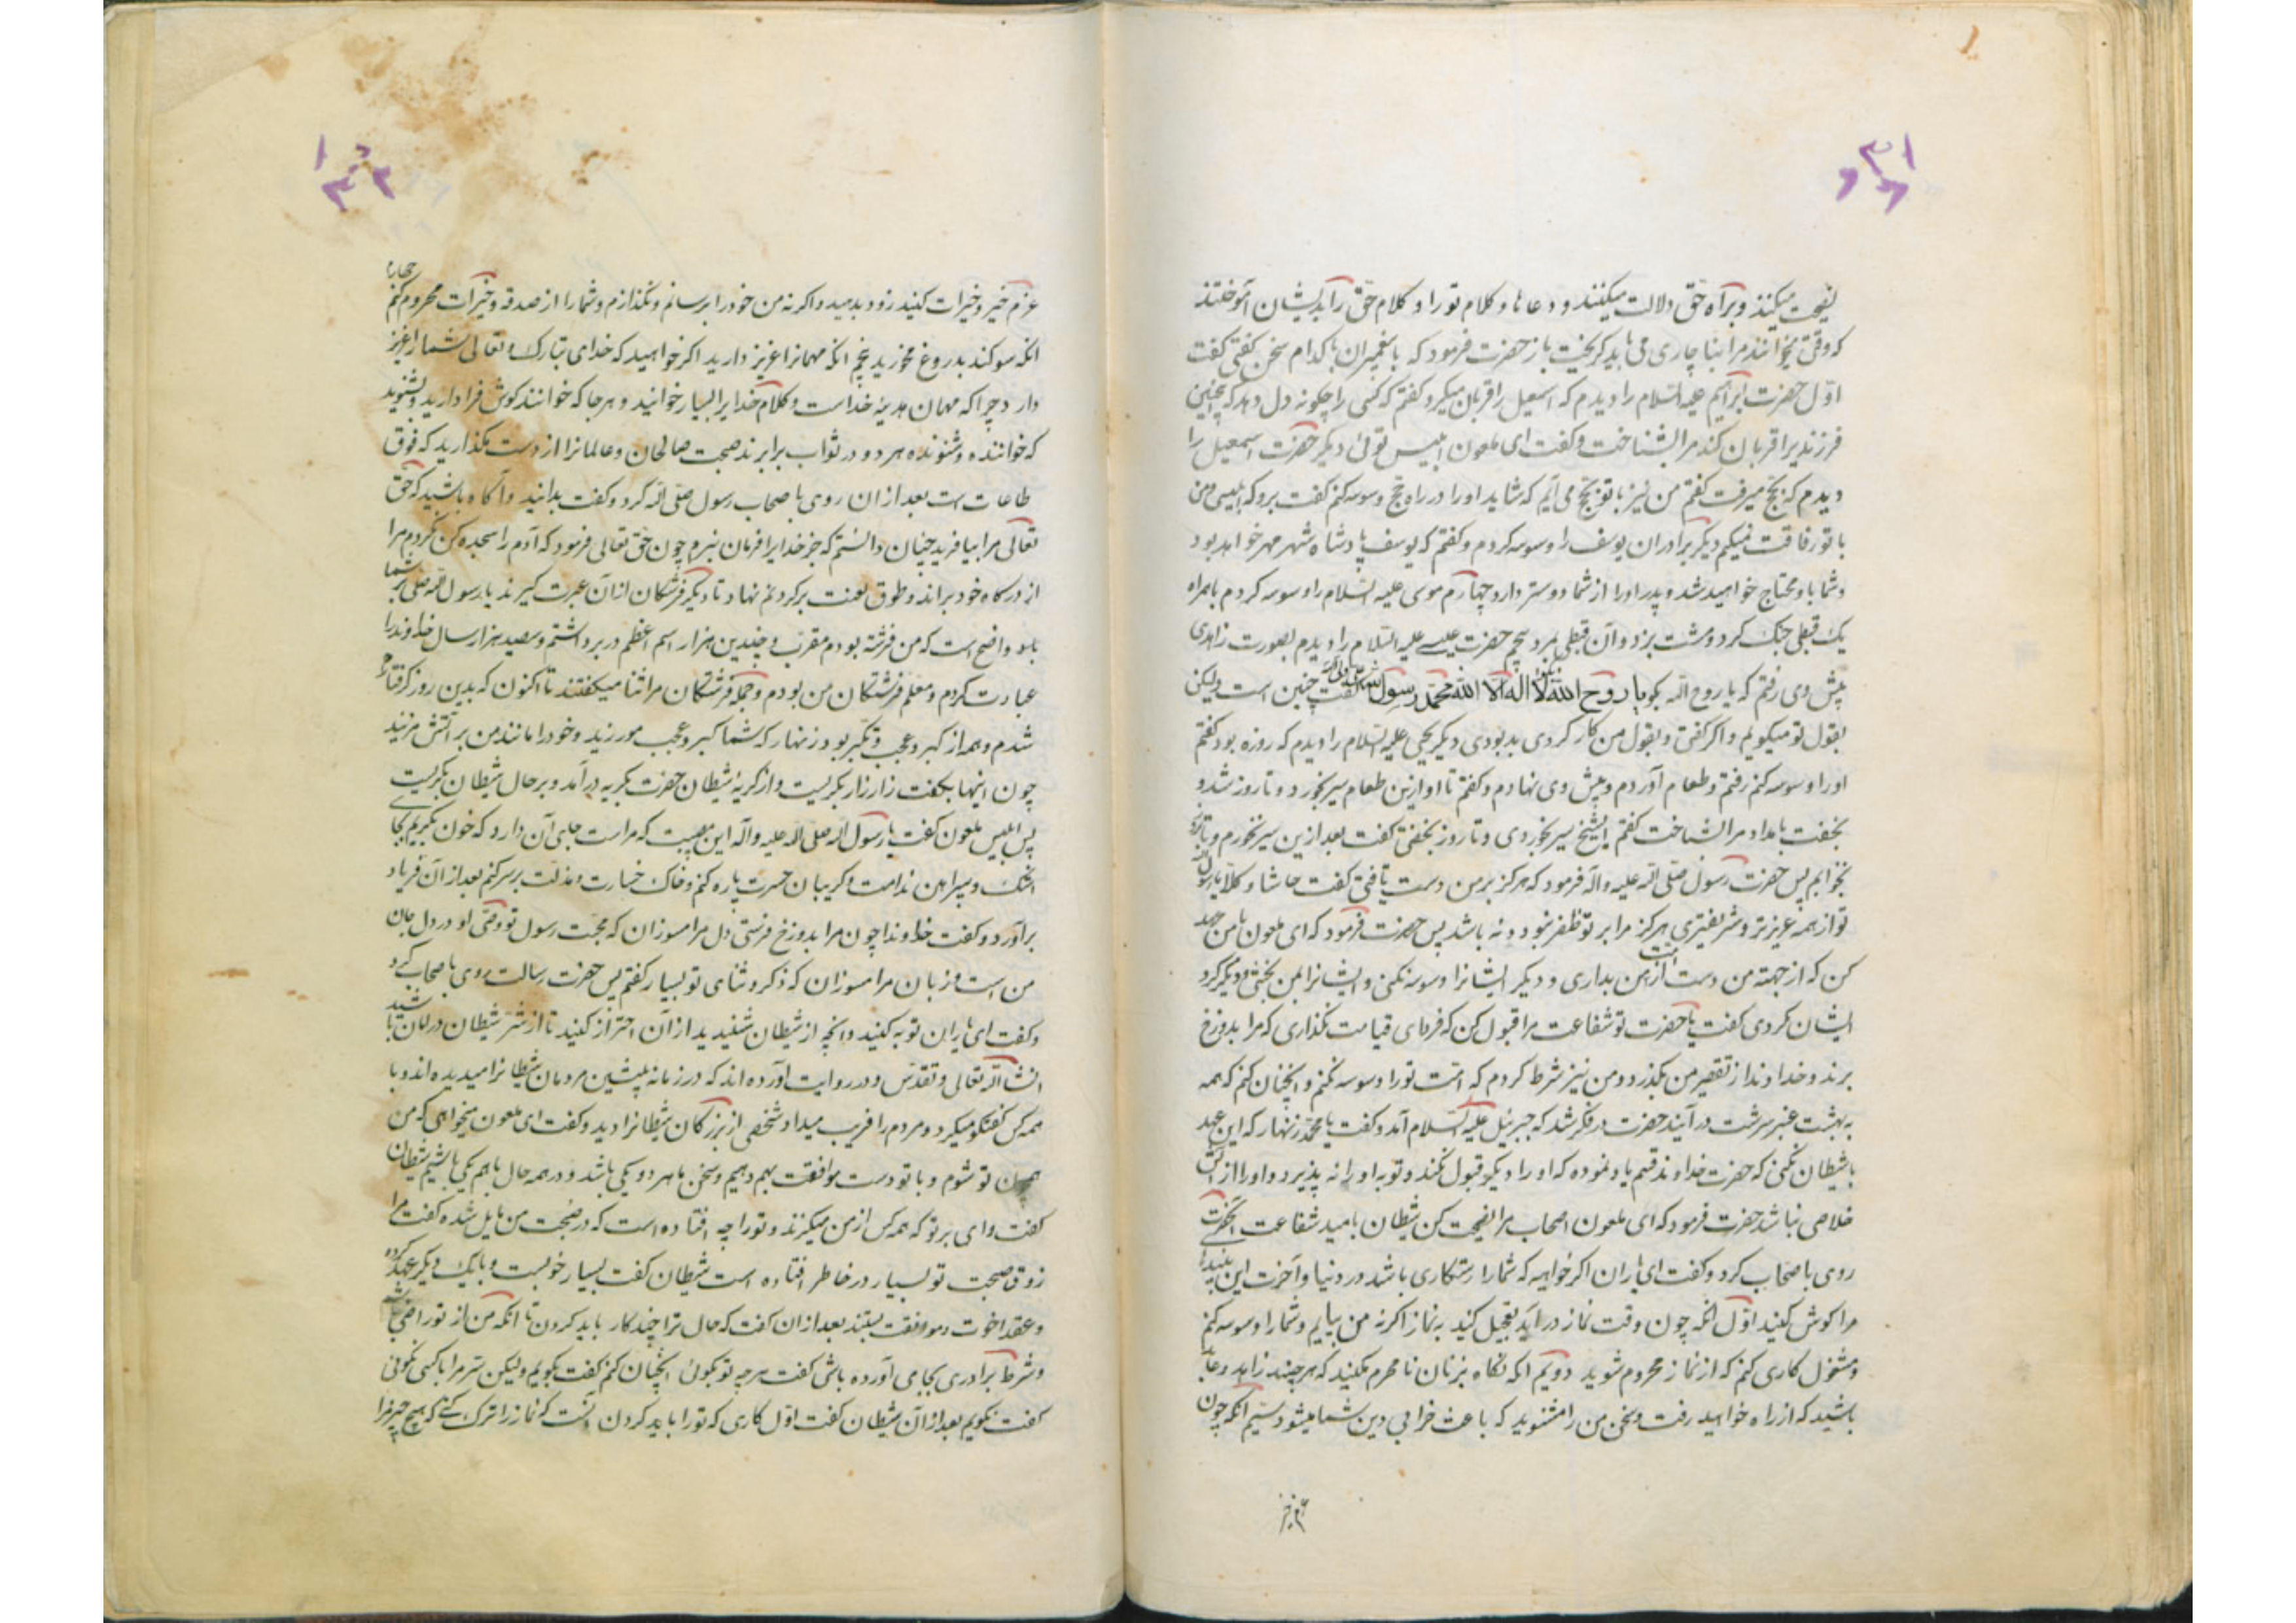 نصیحت میکنند و براه حق دلالت میکنند و دعاها و کلام تو را و کلام حق را بدیشان آموختند
که وقتی بخوانند مرا بناچاری می باید کریخت باز حضرت فرمود که با پغمبران با کدام سخن کفتی کفت
اول حضرت ابراهیم علیه السلام را دیدم که اسمعیل را قربان میکرد کفتم که کسی را چکونه دل دهد که چنین
فرزندیرا قربان کند مرا بشناخت و کفت ای ملعون ابلیس توئی دیکر حضرت اسمعیل را
دیدم که بحج میرفت کفتم من نیز با تو بحج می آیم که شاید او را در راه حج وسوسه کنم کفت برو که ابلیسی و من
با تو رفاقت نمیکنم دیکر برادران یوسف را وسوسه کردم و کفتم که یوسف پادشاه شهر مصر خواهد بود
و شما باو محتاج خواهید شد و پدر او را از شما دوستر دارد چهارم موسی علیه السلام را وسوسه کردم بامراه
یک قبطی جنک کرد و مشت بزد و آن قبطی بمرد پنجم حضرت عیسی علیه السلام را دیدم بصورت زاهدی
پیش وی رفتم که یا روح الله بکو یا روح الله لا اله الا الله محمد رسول الله کفت چنین است ولیکن
بقول تو میکویم و اکر کفتی و بقول من کار کردی بد بودی دیکر یحیی علیه السلام را دیدم که روزه بود کفتم
او را وسوسه کنم رفتم و طعام آوردم و پیش وی نهادم و کفتم تا او ازین طعام سیر بخورد و تا روز شد و
بخفت بامداد مرا بشناخت کفتم ای شیخ سیر بخوردی و تا روز بخفتی کفت بعد ازین سیر نخورم و تا روز
نخوابم پس حضرت رسول صلی الله علیه و آله فرمود که هرکز بر من دست یافتی کفت حاشا و کلا یا رسول الله
تو از همه عزیزتر و شریفتری هرکز مرا بر تو ظفر نبود و نه باشد پس حضرت فرمود که ای ملعون با من عهد
کن که از جهته من دست از امت من بداری و دیکر ایشانرا وسوسه نکنی و ایشانرا بمن بخشی و دیکر کرد
ایشان نکردی کفت یا حضرت تو شفاعت مرا قبول کن که فردای قیامت نکذاری که مرا بدوزخ
برند و خداوند از تقصیر من بکذرد و من نیز شرط کردم که امت تو را وسوسه نکنم و آنچنان کنم که همه
به بهشت عنبر سرشت در آیند حضرت در فکر شد که جبرئیل علیه السلام آمد و کفت یا محمد زنهار که این عهد
با شیطان نکنی که حضرت خداوند قسم یاد نموده که او را دیکر قبول نکند و توبه او را نه پذیرد و او را از آتش
خلاصی نباشد حضرت فرمود که ای ملعون اصحاب مرا نصیحت کن شیطان بامید شفاعت آنحضرت
روی باصحاب کرد و کفت ای یاران اکر خواهید که شما را رستکاری باشد در دنیا و آخرت این پندها
مرا کوش کنید اول آنکه چون وقت نماز در آید تعجیل کنید به نماز اکرنه من بیایم و شما را وسوسه کنم
و مشغول کاری کنم که از نماز محروم شوید دویم آنکه نکاه بزنان نامحرم مکنید که هر چند زاهد و عابد
باشید که از راه خواهید رفت و سخن من را مشنوید که باعث خرابی دین شما میشود سیم آنکه چون
عزم خیر
عزم خیر و خیرات کنید زود بدهید و اکرنه من خود را برسانم و نکذارم و شما را از صدقه و خیرات محروم کنم چهارم
آنکه سوکند بدروغ مخورید پنجم آنکه مهمانرا عزیز دارید اکر خواهید که خدای تبارک و تعالی شما را عزیز
دارد چرا که مهمان هدیه خداست و کلام خدایرا بسیار خوانید و هر جا که خوانند کوش فرا دارید و بشنوید
که خواننده و شنونده هر دو در ثواب برابرند صحبت صالحان و عالمانرا از دست مکذارید که فوق
طاعات ست بعد از ان روی باصحاب رسول صلی الله کرد و کفت بدانید و آکاه باشید که حق
تعالی مرا بیافرید چنان دانستم که جز خدایرا فرمان نبرم چون حق تعالی فرمود که آدم را سجده کن نکردم مرا
از درکاه خود براند و طوق لعنت برکردنم نهاد تا دیکر فرشتکان از آن عبرت کیرند یا رسول الله صلی بر شما
باد واضح است که من فرشته بودم مقرب و چندین هزار اسم اعظم در بر داشتم و سیصد هزار سال خداوندرا
عبادت کردم و معلم فرشتکان من بودم و جمله فرشتکان مرا ثنا میکفتند تا اکنون که بدین روز کرفتار
شدم و همه از کبر و عجب و تکبر بود زنهار که شما کبر و عجب مورزید و خود را مانند من بر آتش مزنید
چون اینها بکفت زار زار بکریست و از کریه شیطان حضرت بکریه در آمد و بر حال شیطان بکریست
پس ابلیس ملعون کفت یا رسول الله صلی الله علیه و آله این مصیبت که مراست جای آن دارد که خون بکریم بجای
اشک و پیراهن ندامت و کریبان حسرت پاره کنم و خاک خسارت و مذلت بر سر کنم بعد از آن فریاد
برآورد و کفت خداوندا چون مرا بدوزخ فرستی دل مرا مسوزان که محبت رسول تو و وصی او در دل جان
من است و زبان مرا مسوزان که ذکر و ثنای تو بسیار کفتم پس حضرت رسالت روی باصحاب کرد
و کفت ای یاران توبه کنید و آنچه از شیطان شنیدید از آن احتراز کنید تا از شر شیطان در امان باشید
انشا الله تعالی و تقدس و در روایت آورده اند که در زمانه پیشین مردمان شیطانرا میدیده اند و با
همه کس کفتکو میکرد و مردم را فریب میداد شخصی از بزرکان شیطانرا دید و کفت ای ملعون میخواهی که من
همچون تو شوم و با تو دست موافقت بهم دهیم و سخن ما هر دو یکی باشد و در همه حال با هم یکی باشیم شیطان
کفت وای بر تو که همه کس از من میکریزند و تو را چه افتاده است که در صحبت من مایل شده کفت مرا
زوق صحبت تو بسیار در خاطر افتاده است شیطان کفت بسیار خوبست و با یک دیکر عهد کرده
و عقد اخوت و موافقت بستند بعد از ان کفت که حال ترا چند کار باید کردن تا آنکه من از تو راضی باشم
و شرط برادری بجای آورده باشی کفت هر چه تو بکوئی آنچنان کنم کفت بکویم ولیکن سر مرا با کسی نکوئی
کفت نکویم بعد از آن شیطان کفت اول کاری که تو را باید کردن آنست که نماز را ترک کنی که هیچ چیز مرا